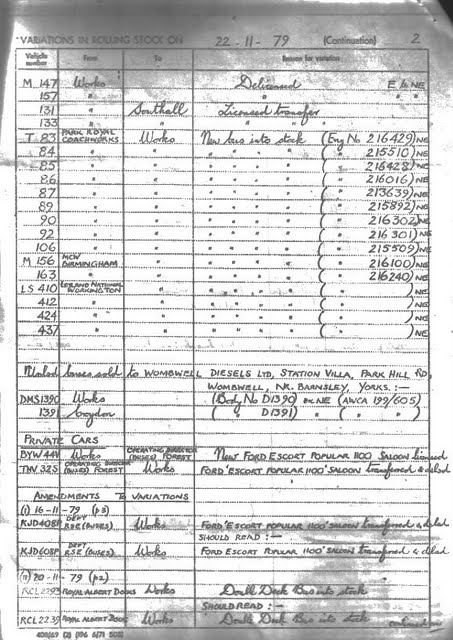 VARIATIONS IN ROLLING STOCK ON 22-11-79 (Continuation) 2
Vehicle number From To Reason for variation
M 147 Works Delicensed E & NE
157 " " "
131 " Southall Licensed transfer
133 " " " "
T 83 PARK ROYAL COACHWORKS Works New bus into stock (Eng No 216429) NE
84 " " " " " " ( " 215510) NE
85 " " " " " " ( " 216428) NE
86 " " " " " " ( " 216016) NE
87 " " " " " " ( " 213639) NE
89 " " " " " " ( " 215892) NE
90 " " " " " " ( " 216302) NE
92 " " " " " " ( " 216301) NE
106 " " " " " " ( " 215509) NE
M 156 MCW BIRMINGHAM " " " " " ( " 216100) NE
163 " " " " " " ( " 216240) NE
LS 410 LEYLAND NATIONAL WORKINGTON " " " " " ( " ) NE
412 " " " " " " ( " ) NE
424 " " " " " " ( " ) NE
437 " " " " " " ( " ) NE
buses sold to WOMBWELL DIESELS LTD, STATION VILLA, PARK HILL RD,
WOMBWELL, NR. BARNSLEY, YORKS. :—
DMS1390 Works (Body No D1390) (AWCA 199/605)
1391 Croydon ( " D1391) ( " " )
PRIVATE CARS
BYW 44V Works OPERATING DIRECTOR (BUSES) FOREST New FORD ESCORT POPULAR 1100 SALOON licensed
THV 32S OPERATING DIRECTOR (BUSES) FOREST Works FORD 'ESCORT POPULAR 1100' SALOON transferred & delcd
AMENDMENTS TO VARIATIONS
(I) 16-11-79 (p3)
KJD408P DEPT RSE (BUSES) Works FORD 'ESCORT POPULAR 1100' SALOON transferred & delcd
SHOULD READ :—
KJD608P DEPT RSE (BUSES) Works FORD 'ESCORT POPULAR 1100' SALOON transferred & delcd
(II) 20-11-79 (p2)
RCL2293 ROYAL ALBERT DOCKS Works Double Deck Bus into stock
SHOULD READ :—
RCL2239 ROYAL ALBERT DOCKS Works Double Deck Bus into stock
continued on